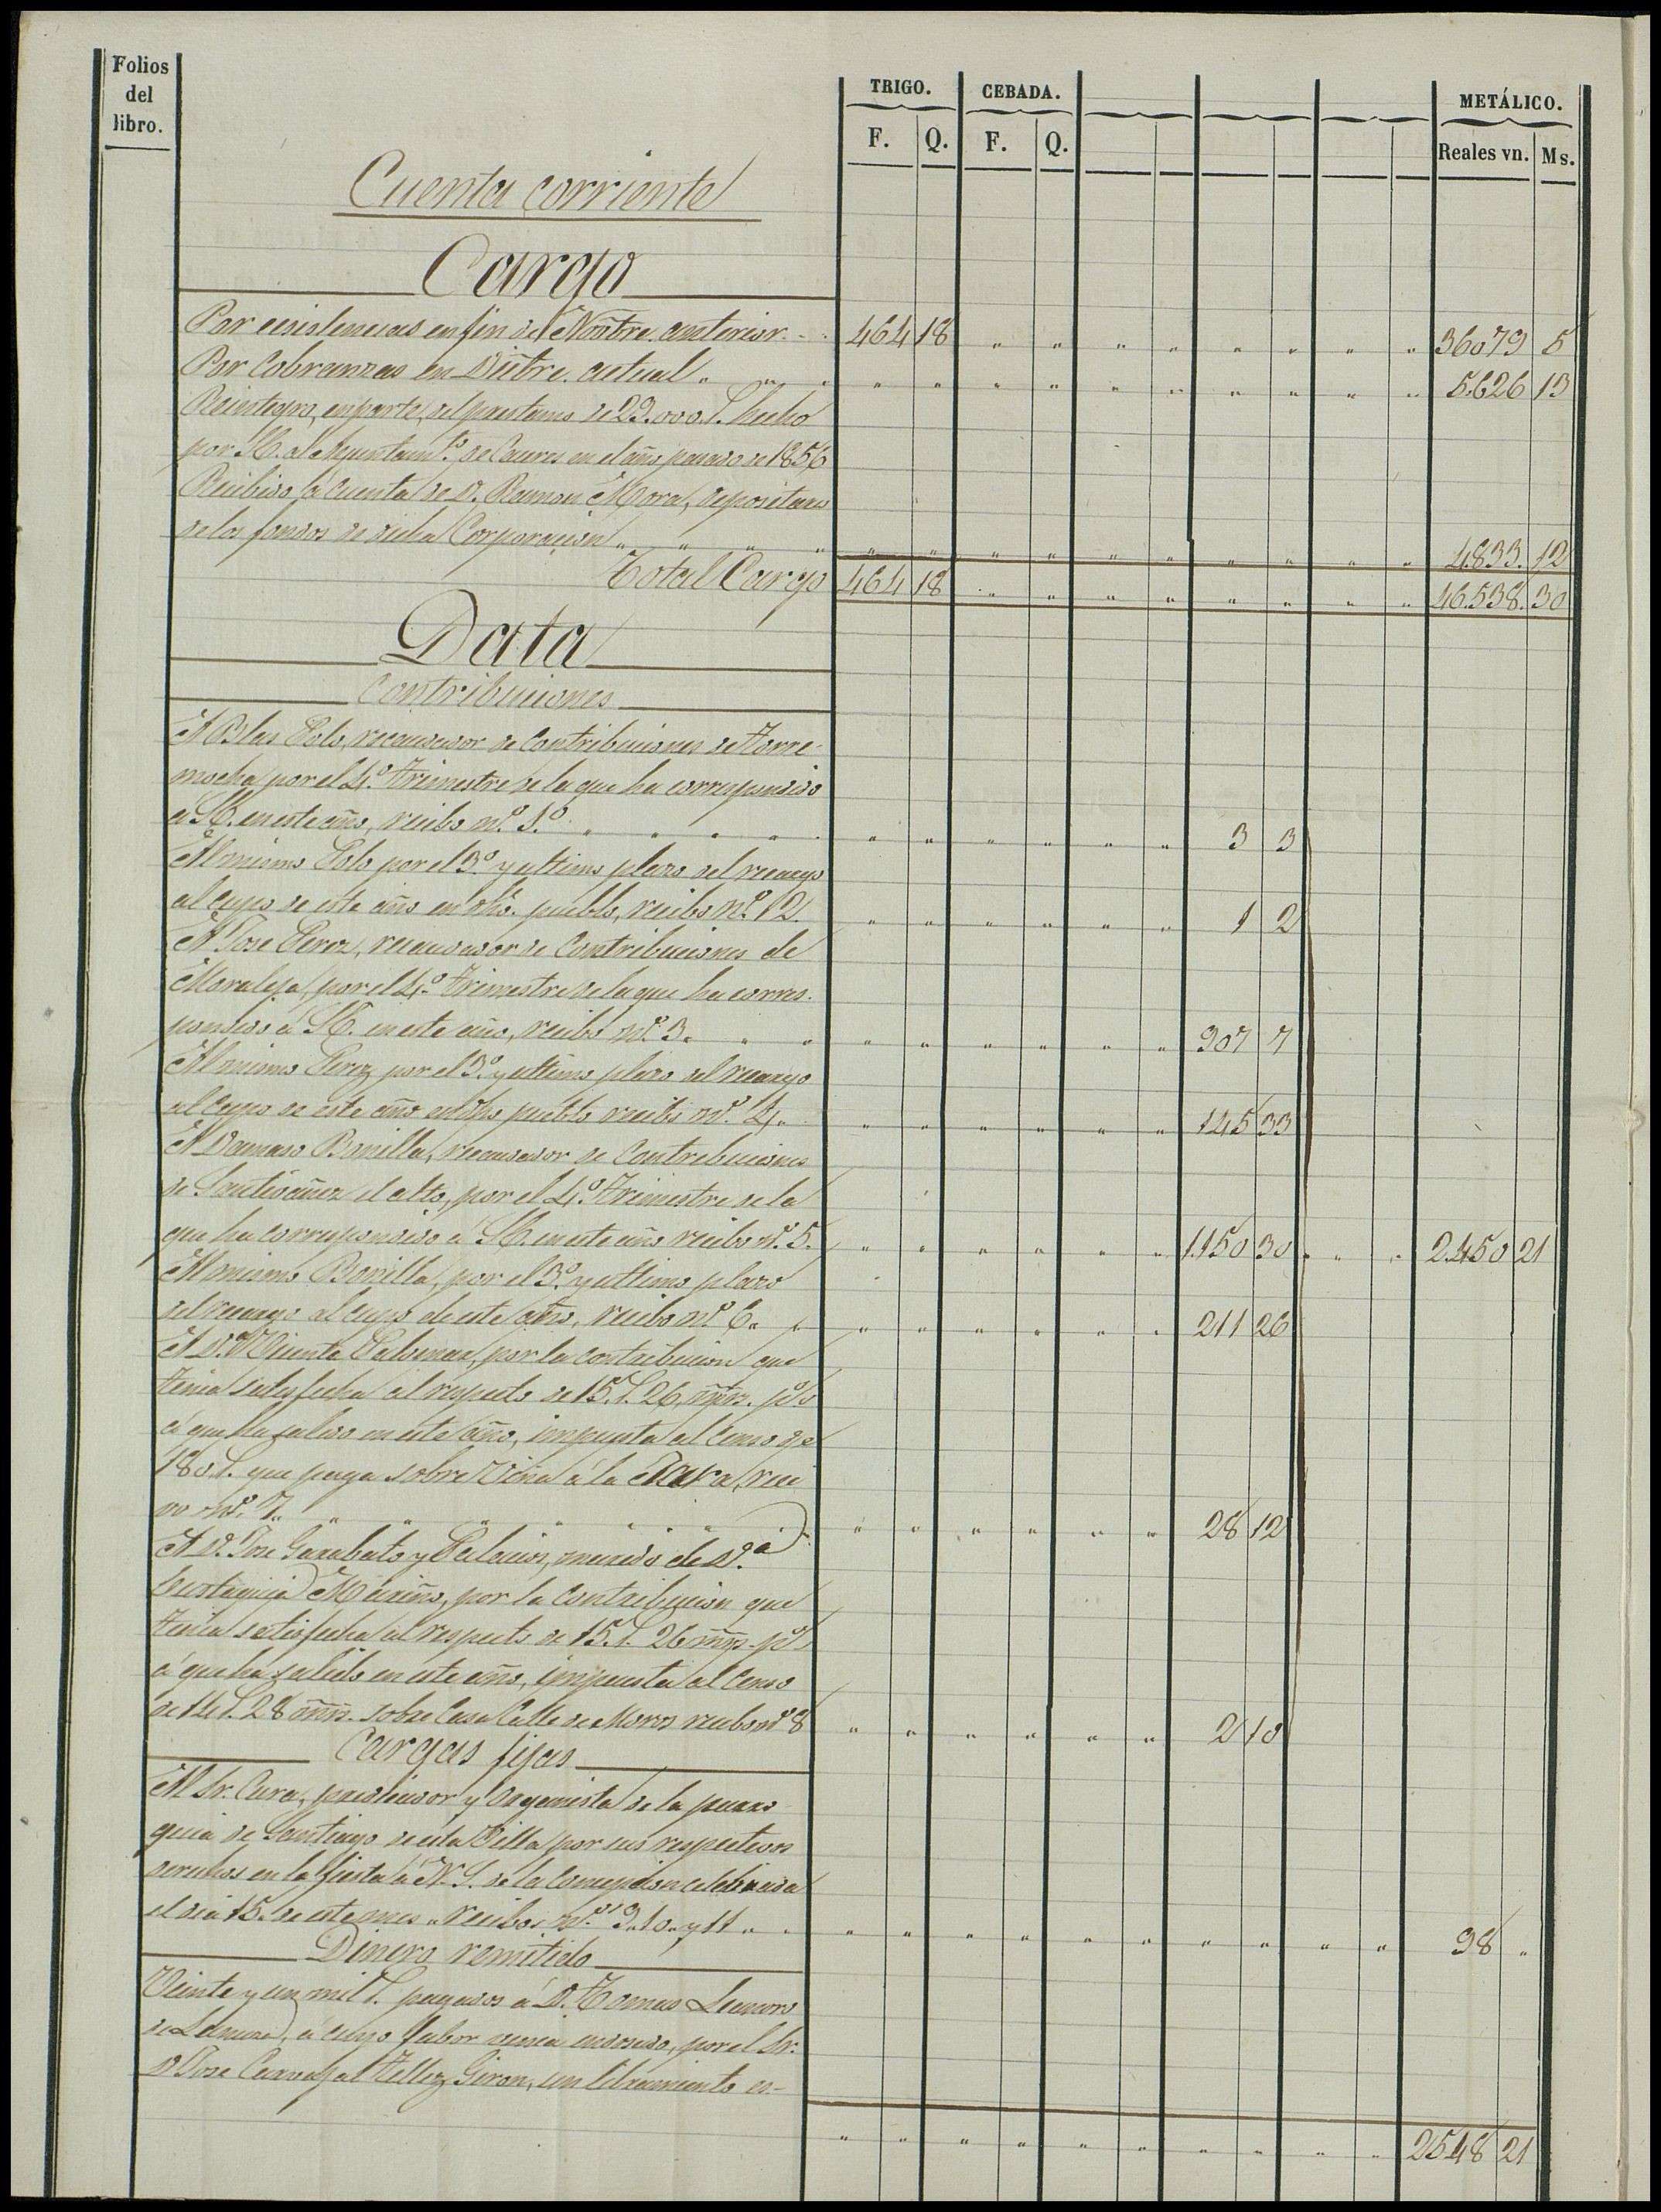 Folios del libro.
TRIGO. CEBADA. METÁLICO.
F. Q. F. Q. Reales vn. Ms.
Cuenta corriente
Cargo
Por existencias en fin del Novbre. anterior 464 18 " " " " " " " " 36079 5
Por Cobranzas en Dicbre. actual " " " " " " " " " " 5.626 13
Reintegro, en parte, del prestamo de 29.000 r. hecho
por S.E. al Ayuntamto. de Caceres en el año pasado de 1856
Recibido á cuenta de D. Ramon Mora, depositario
de los fondos de dicha Corporacion " " " " " " " " " " 4.833. 12
Total Cargo 464 18 " " " " " " " " 46.538. 30
Data
Contribuciones
A Blas Polo, recaudador de Contribuciones de Torre-
mocha, por el 4º. Trimestre de la que ha correspondido
a S.E. en este año, recibo nº. 1º. " " " " " " 3 3
Al mismo Polo por el 3º. y ultimo plazo del recargo
al cupo de este año en dho. pueblo, recibo nº. 2. " " " " " " 1 2
A Jose Perez, recaudador de Contribuciones de
Moraleja, por el 4º. Trimestre de la que ha corres-
pondido á S.E. en este año, recibo nº. 3. " " " " " " 907 7
Al mismo Perez por el 3º. y ultimo plazo del recargo
al cupo de este año en dho pueblo recibo nº. 4. " " " " " " 145 33
A Damaso Bonilla, recaudador de Contribuciones
de Santibañez el alto, por el 4º. Trimestre de la
que ha correspondido á S.E. en este año recibo nº. 5. " " " " " " 1.150 30 " " 2.450 21
Al mismo Bonilla, por el 3º. y ultimo plazo
del recargo al cupo de este año, recibo nº 6. " " " " " " 211 26
A D. Vicente Palomar, por la contribucion que
tenia satisfecha al respecto de 15. r. 26 mrs. pº/o
á que ha salido en este año, impuesta al Censo de
180 r. que paga sobre Viña á la reci
vo nº. 7. " " " " " " 28 12
A D. Jose Garabato y Palacios, marido de Dª.
Eustaquia Mariño, por la Contribucion que
tenia satisfecha al respecto de 15. r. 26 mrs. pº/o
á que ha salido en este año, impuesta al Censo
de 14 r. 28 mrs. sobre Casa Calle de Moros recibo nº 8 " " " " " " 2 10
Cargas fijas
Al Sr. Cura, y Organista de la parro-
quia de Santiago de esta Villa por sus respectivos
derechos en la fiesta á N. S. de la Concepcion celebrada
el dia 15. de este mes. recibos nos. 9. 10. y 11 " " " " " " " " " " 98 "
Dinero remitido
Veinte y un mil r. pagados á D. Tomas
de, á cuyo fabor venia endosado, por el Sr.
D. Jose Carvajal Tellez Giron, un libramiento es-
" " " " " " " " " " 2548 21